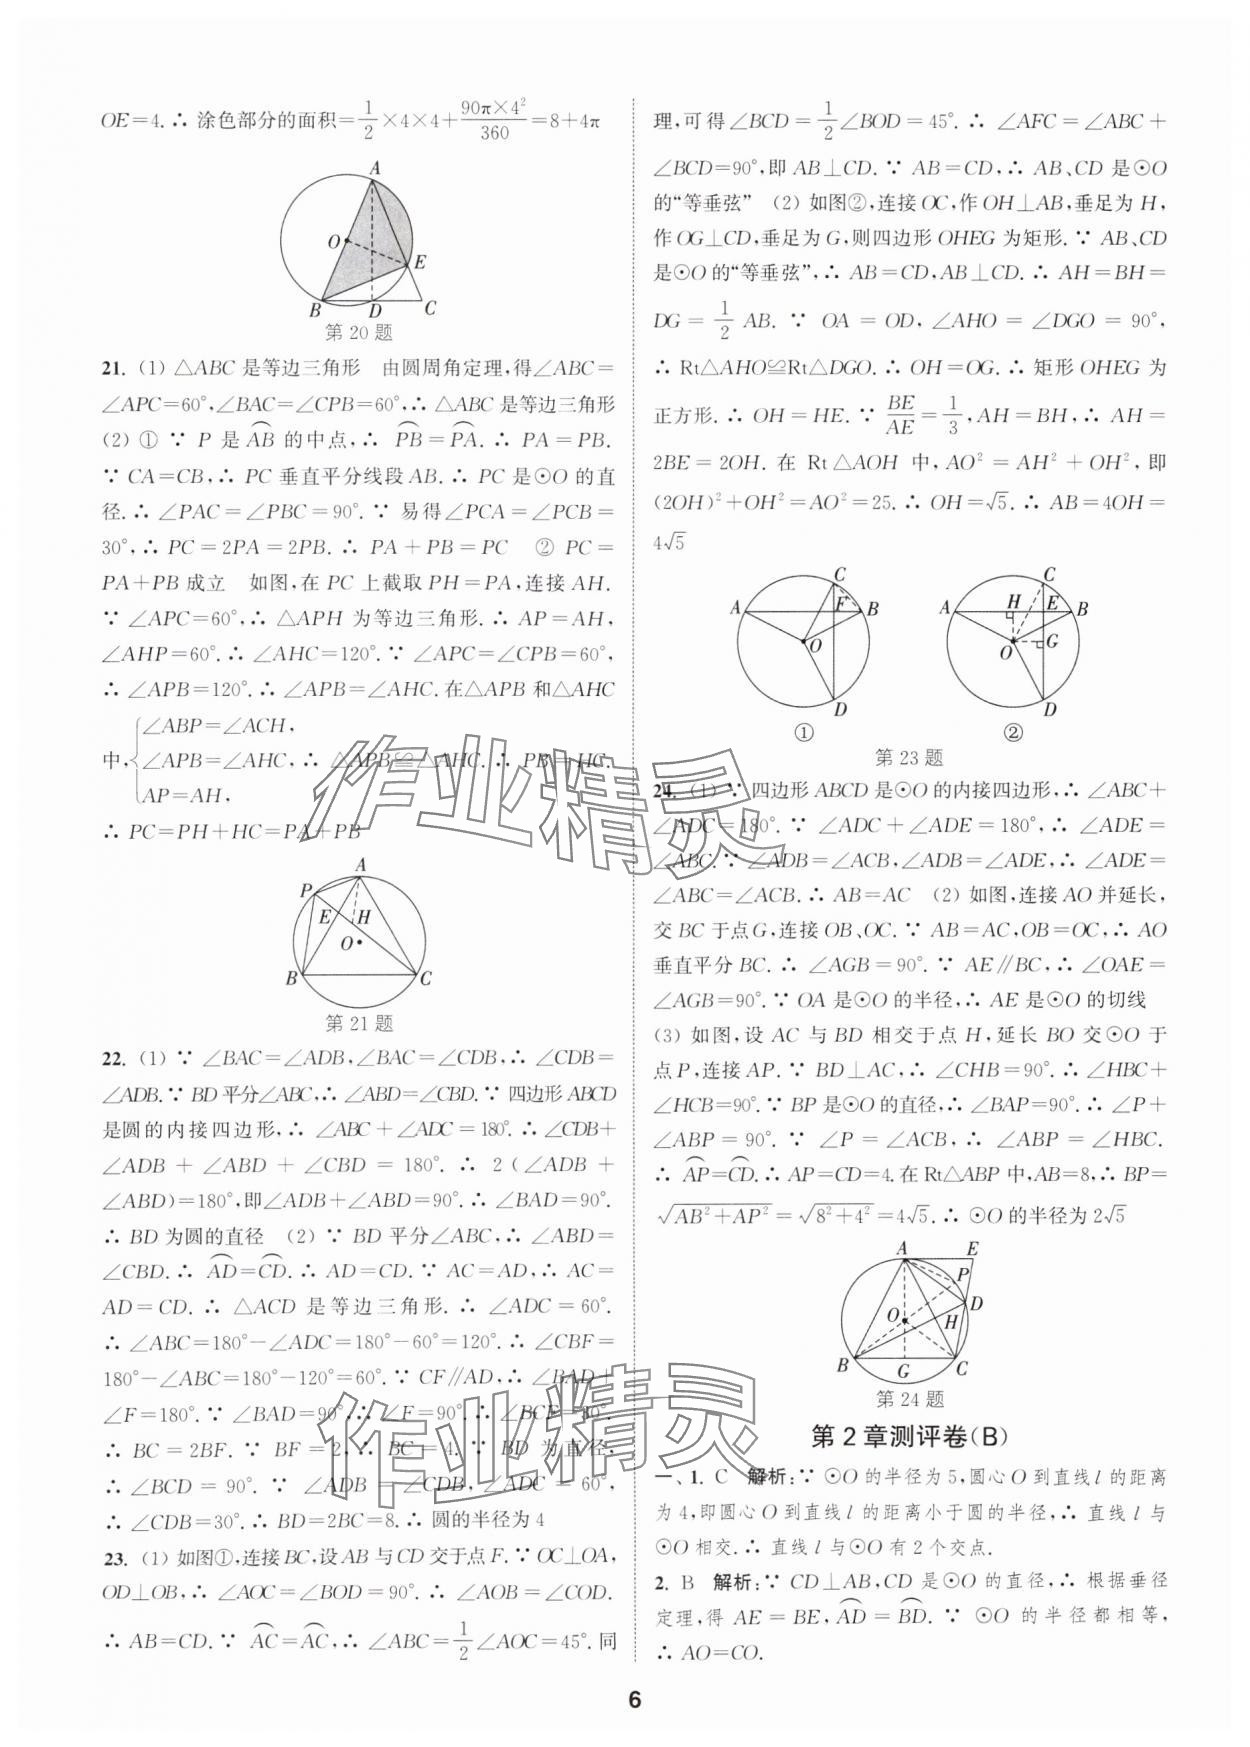 OE=4.∴ 涂色部分的面积=1/2×4×4+90π×4²/360=8+4π
A
O
E
B D C
第 20 题
21. (1) △ABC 是等边三角形 由圆周角定理,得∠ABC=
∠APC=60°,∠BAC=∠CPB=60°,∴ △ABC 是等边三角形
(2) ① ∵ P 是 ⌒AB 的中点,∴ ⌒PB=⌒PA.∴ PA=PB.
∵ CA=CB,∴ PC 垂直平分线段 AB.∴ PC 是⊙O 的直
径.∴ ∠PAC=∠PBC=90°.∵ 易得∠PCA=∠PCB=
30°,∴ PC=2PA=2PB.∴ PA+PB=PC ② PC=
PA+PB 成立 如图,在 PC 上截取 PH=PA,连接 AH.
∵ ∠APC=60°,∴ △APH 为等边三角形.∴ AP=AH,
∠AHP=60°.∴ ∠AHC=120°.∵ ∠APC=∠CPB=60°,
∴ ∠APB=120°.∴ ∠APB=∠AHC.在△APB 和△AHC
∠ABP=∠ACH,
中,∠APB=∠AHC,∴ △APB≌△AHC.∴ PB=HC.
AP=AH,
∴ PC=PH+HC=PA+PB
A
P
E H
O
B C
第 21 题
22. (1) ∵ ∠BAC=∠ADB,∠BAC=∠CDB,∴ ∠CDB=
∠ADB.∵ BD 平分∠ABC,∴ ∠ABD=∠CBD.∵ 四边形 ABCD
是圆的内接四边形,∴ ∠ABC+∠ADC=180°.∴ ∠CDB+
∠ADB + ∠ABD + ∠CBD = 180°.∴ 2(∠ADB +
∠ABD)=180°,即∠ADB+∠ABD=90°.∴ ∠BAD=90°.
∴ BD 为圆的直径 (2) ∵ BD 平分∠ABC,∴ ∠ABD=
∠CBD.∴ ⌒AD=⌒CD.∴ AD=CD.∵ AC=AD,∴ AC=
AD=CD.∴ △ACD 是等边三角形.∴ ∠ADC=60°.
∴ ∠ABC=180°-∠ADC=180°-60°=120°.∴ ∠CBF=
180°-∠ABC=180°-120°=60°.∵ CF∥AD,∴ ∠BAD+
∠F=180°.∵ ∠BAD=90°,∴ ∠F=90°.∴ ∠BCF=30°.
∴ BC=2BF.∵ BF=2,∴ BC=4.∵ BD 为直径,
∴ ∠BCD = 90°.∵ ∠ADB = ∠CDB,∠ADC = 60°,
∴ ∠CDB=30°.∴ BD=2BC=8.∴ 圆的半径为 4
23. (1) 如图①,连接 BC,设 AB 与 CD 交于点 F.∵ OC⊥OA,
OD⊥OB,∴ ∠AOC=∠BOD=90°.∴ ∠AOB=∠COD.
∴ AB=CD.∵ ⌒AC=⌒AC,∴ ∠ABC=1/2∠AOC=45°.同
理,可得∠BCD=1/2∠BOD=45°.∴ ∠AFC=∠ABC+
∠BCD=90°,即 AB⊥CD.∵ AB=CD,∴ AB、CD 是⊙O
的“等垂弦” (2) 如图②,连接 OC,作 OH⊥AB,垂足为 H,
作 OG⊥CD,垂足为 G,则四边形 OHEG 为矩形.∵ AB、CD
是⊙O 的“等垂弦”,∴ AB=CD,AB⊥CD.∴ AH=BH=
DG=1/2 AB.∵ OA=OD,∠AHO=∠DGO=90°,
∴ Rt△AHO≌Rt△DGO.∴ OH=OG.∴ 矩形 OHEG 为
正方形.∴ OH=HE.∵ BE/AE=1/3,AH=BH,∴ AH=
2BE=2OH.在 Rt△AOH 中,AO²=AH²+OH²,即
(2OH)²+OH²=AO²=25.∴ OH=√5.∴ AB=4OH=
4√5
C
A F B
O
D
①
C
A H E B
O G
D
②
第 23 题
24. (1) ∵ 四边形 ABCD 是⊙O 的内接四边形,∴ ∠ABC+
∠ADC=180°.∵ ∠ADC+∠ADE=180°,∴ ∠ADE=
∠ABC.∵ ∠ADB=∠ACB,∠ADB=∠ADE,∴ ∠ADE=
∠ABC=∠ACB.∴ AB=AC (2) 如图,连接 AO 并延长,
交 BC 于点 G,连接 OB、OC.∵ AB=AC,OB=OC,∴ AO
垂直平分 BC.∴ ∠AGB=90°.∵ AE∥BC,∴ ∠OAE=
∠AGB=90°.∵ OA 是⊙O 的半径,∴ AE 是⊙O 的切线
(3) 如图,设 AC 与 BD 相交于点 H,延长 BO 交⊙O 于
点 P,连接 AP.∵ BD⊥AC,∴ ∠CHB=90°.∴ ∠HBC+
∠HCB=90°.∵ BP 是⊙O 的直径,∴ ∠BAP=90°.∴ ∠P+
∠ABP=90°.∵ ∠P=∠ACB,∴ ∠ABP=∠HBC.
∴ ⌒AP=⌒CD.∴ AP=CD=4.在 Rt△ABP 中,AB=8,∴ BP=
√(AB²+AP²)=√(8²+4²)=4√5.∴ ⊙O 的半径为 2√5
A E
P
D
O H
B G C
第 24 题
第 2 章测评卷(B)
一、1. C 解析:∵ ⊙O 的半径为 5,圆心 O 到直线 l 的距离
为 4,即圆心 O 到直线 l 的距离小于圆的半径,∴ 直线 l 与
⊙O 相交.∴ 直线 l 与⊙O 有 2 个交点.
2. B 解析:∵ CD⊥AB,CD 是⊙O 的直径,∴ 根据垂径
定理,得 AE=BE,⌒AD=⌒BD.∵ ⊙O 的半径都相等,
∴ AO=CO.
6
作业精灵
作业精灵